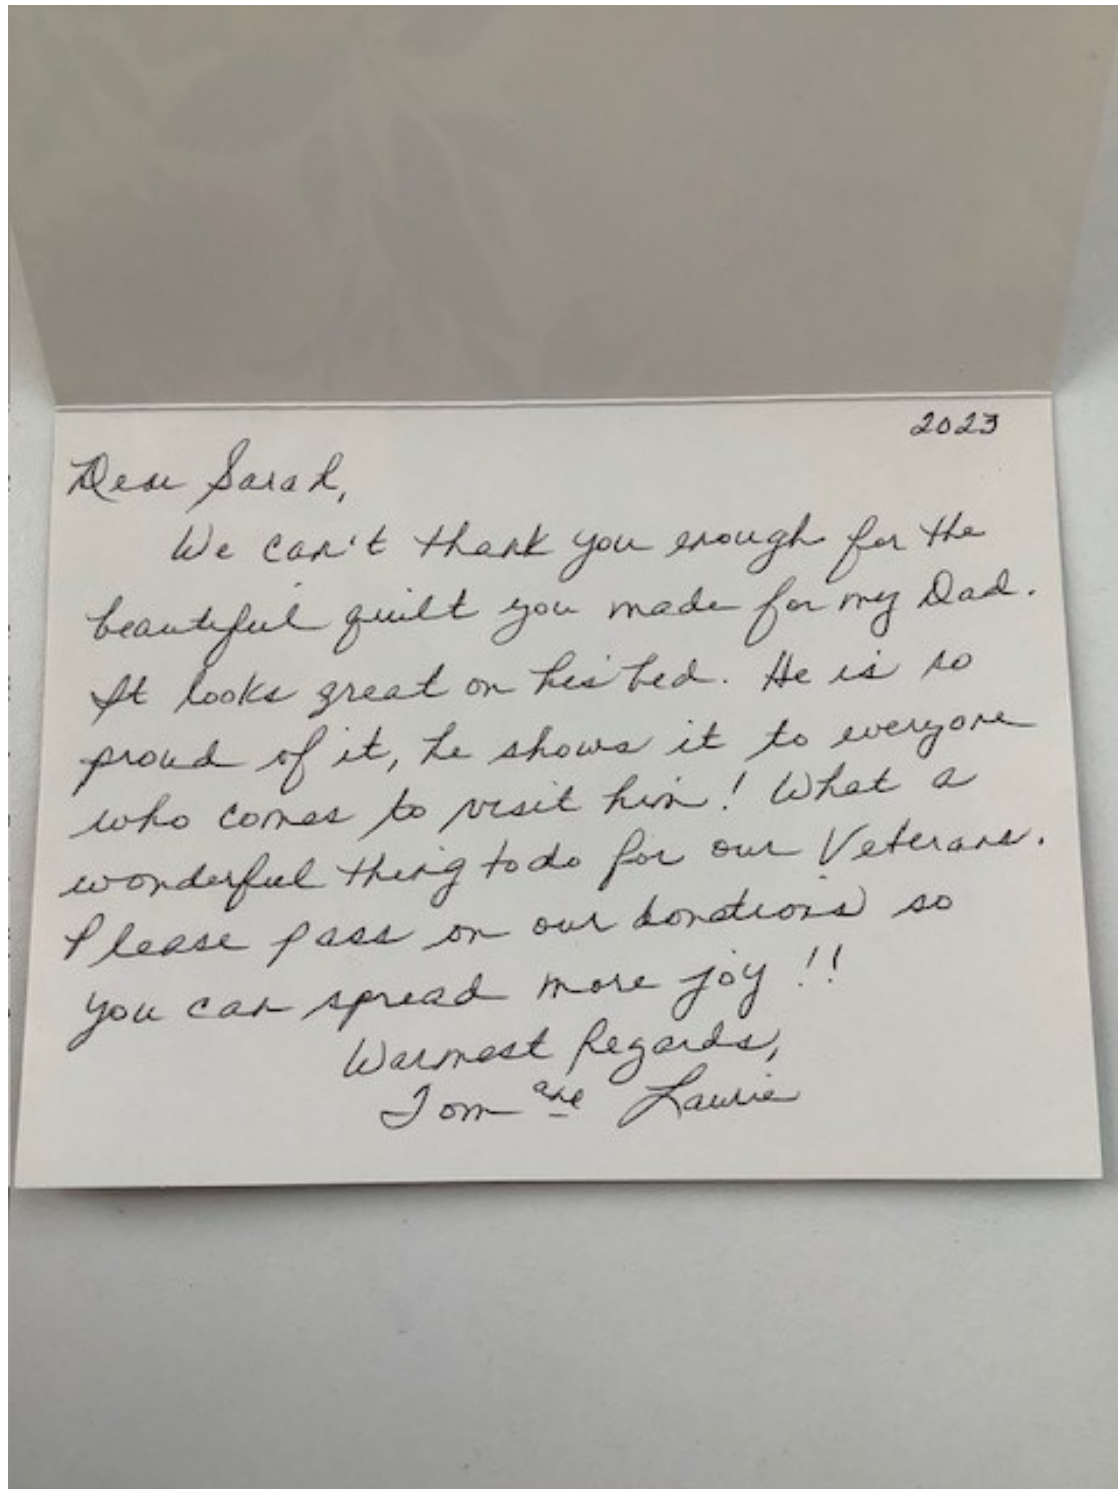 2023
Dear Sarah,
We can't thank you enough for the
beautiful quilt you made for my Dad.
It looks great on his bed. He is so
proud of it, he shows it to everyone
who comes to visit him! What a
wonderful thing to do for our Veterans.
Please pass on our donations so
you can spread more joy!!
Warmest Regards,
Tom and Laurie